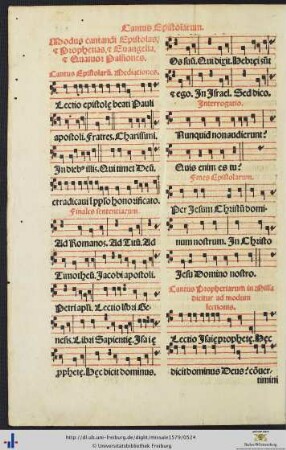 Cantus Epistolarum.
Modus cantandi Epistolas,
⁊ Prophetias, ⁊ Euangelia,
⁊ Quatuor Passiones.
Cantus Epistolarũ. Mediationes.
Lectio epistole beati Pauli
apostoli. Fratres. Charissimi.
In dieb⁹ illis. Qui timet Deũ.
et radicaui ĩ ppl'o honorificato.
Finales sententiarum.
Ad Romanos. Ad Titũ. Ad
Timotheũ. Jacobi apostoli.
Petri apl'i. Lectio libri Ge-
nesis. Libri Sapientie. Isaie
pphete. Hec dicit dominus,
Os suũ. Qui digit. Hebrei sũt
⁊ ego. In Israel. Sed dico.
Interrogatio.
Nunquid non audierunt?
Quis enim es tu?
Fines Epistolarum.
Per Jesum Christũ domi-
num nostrum. In Christo
Jesu Domino nostro.
Cantus Prophetiarum in Missa
dicitur ad modum
lectionis.
Lectio Isaie prophete. Hec
dicit dominus Deus: cõuer-
timini
http://dl.ub.uni-freiburg.de/diglit/missale1579/0524
© Universitätsbibliothek Freiburg